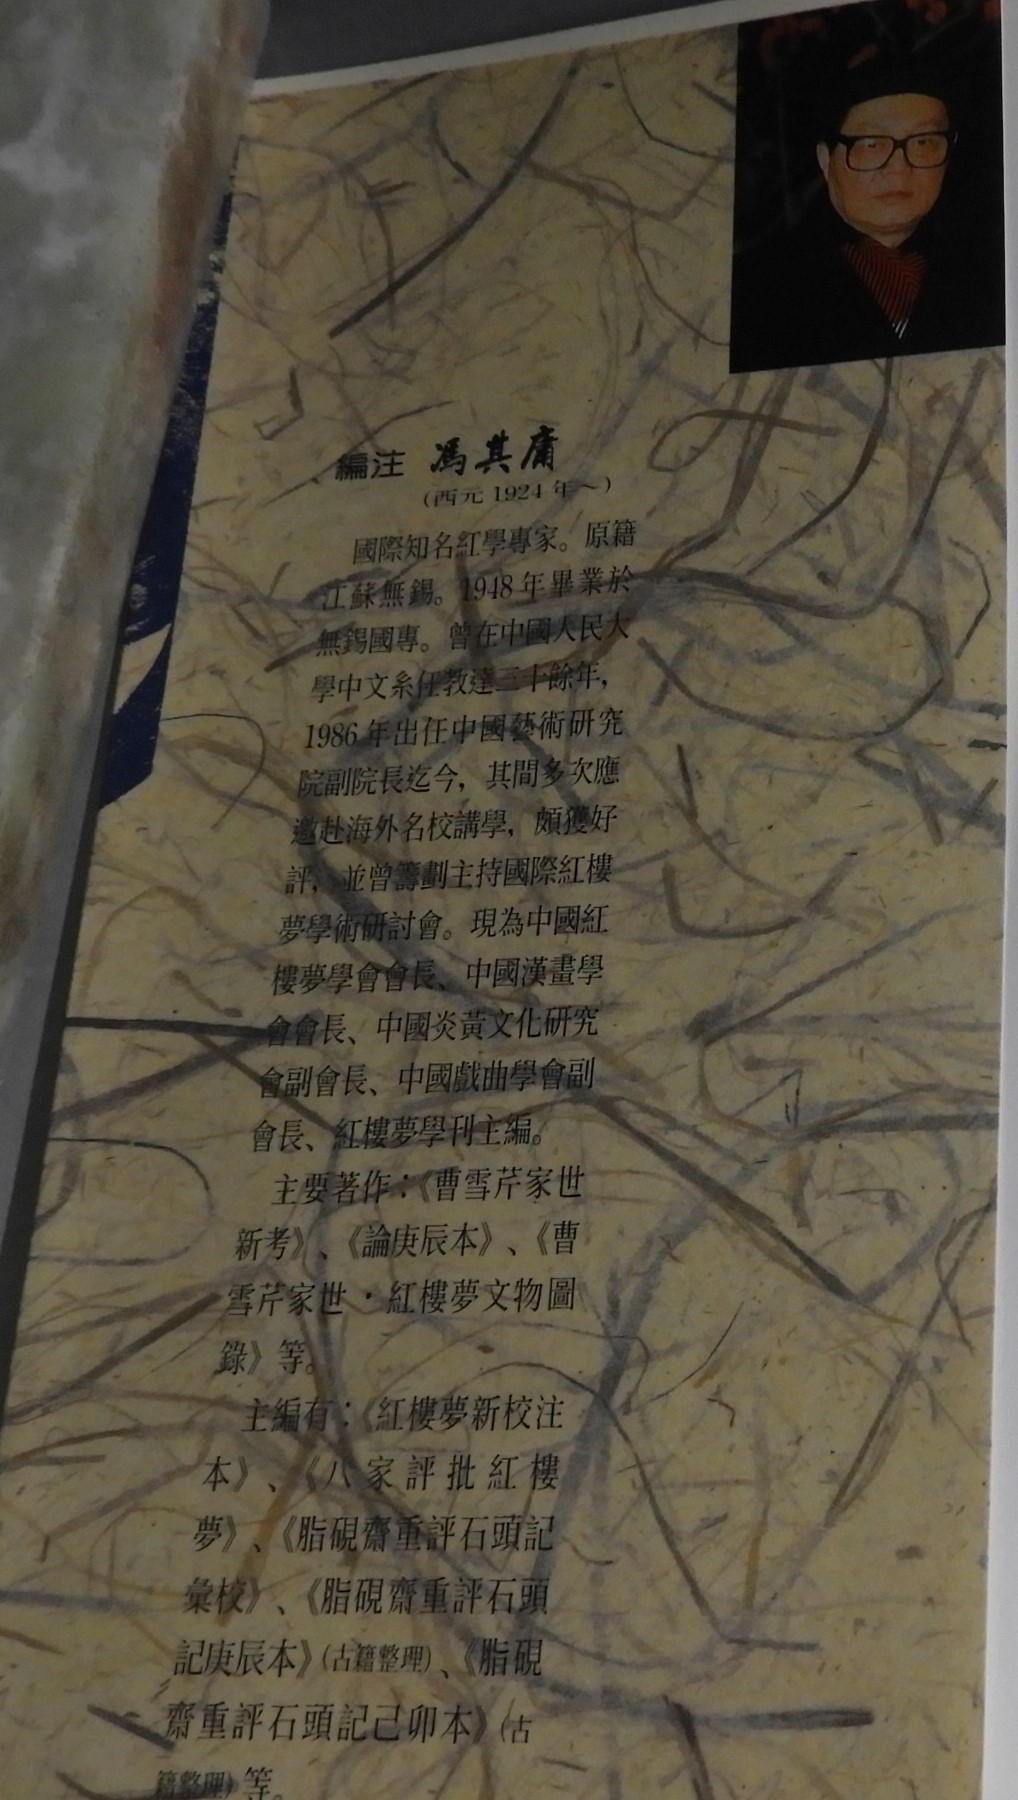 編注 馮其庸
(西元1924年~)
國際知名紅學專家。原籍
江蘇無錫。1948年畢業於
無錫國專。曾在中國人民大
學中文系任教達三十餘年,
1986年出任中國藝術研究
院副院長迄今,其間多次應
邀赴海外名校講學,頗獲好
評,並曾籌劃主持國際紅樓
夢學術研討會。現為中國紅
樓夢學會會長、中國漢畫學
會會長、中國炎黃文化研究
會副會長、中國戲曲學會副
會長、紅樓夢學刊主編。
主要著作:《曹雪芹家世
新考》、《論庚辰本》、《曹
雪芹家世·紅樓夢文物圖
錄》等。
主編有:《紅樓夢新校注
本》、《八家評批紅樓
夢》、《脂硯齋重評石頭記
彙校》、《脂硯齋重評石頭
記庚辰本》(古籍整理)、《脂硯
齋重評石頭記己卯本》(古
籍整理)等。